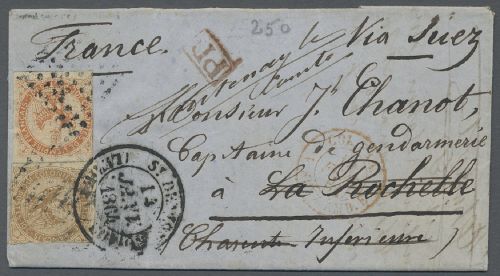 250
France. Via Suez
P.D.
Fontenay le
Comte
Monsieur J. Chanot,
Capitaine de gendarmerie
à La Rochelle
(Charente Inférieure)
ST DENIS
13
JANV